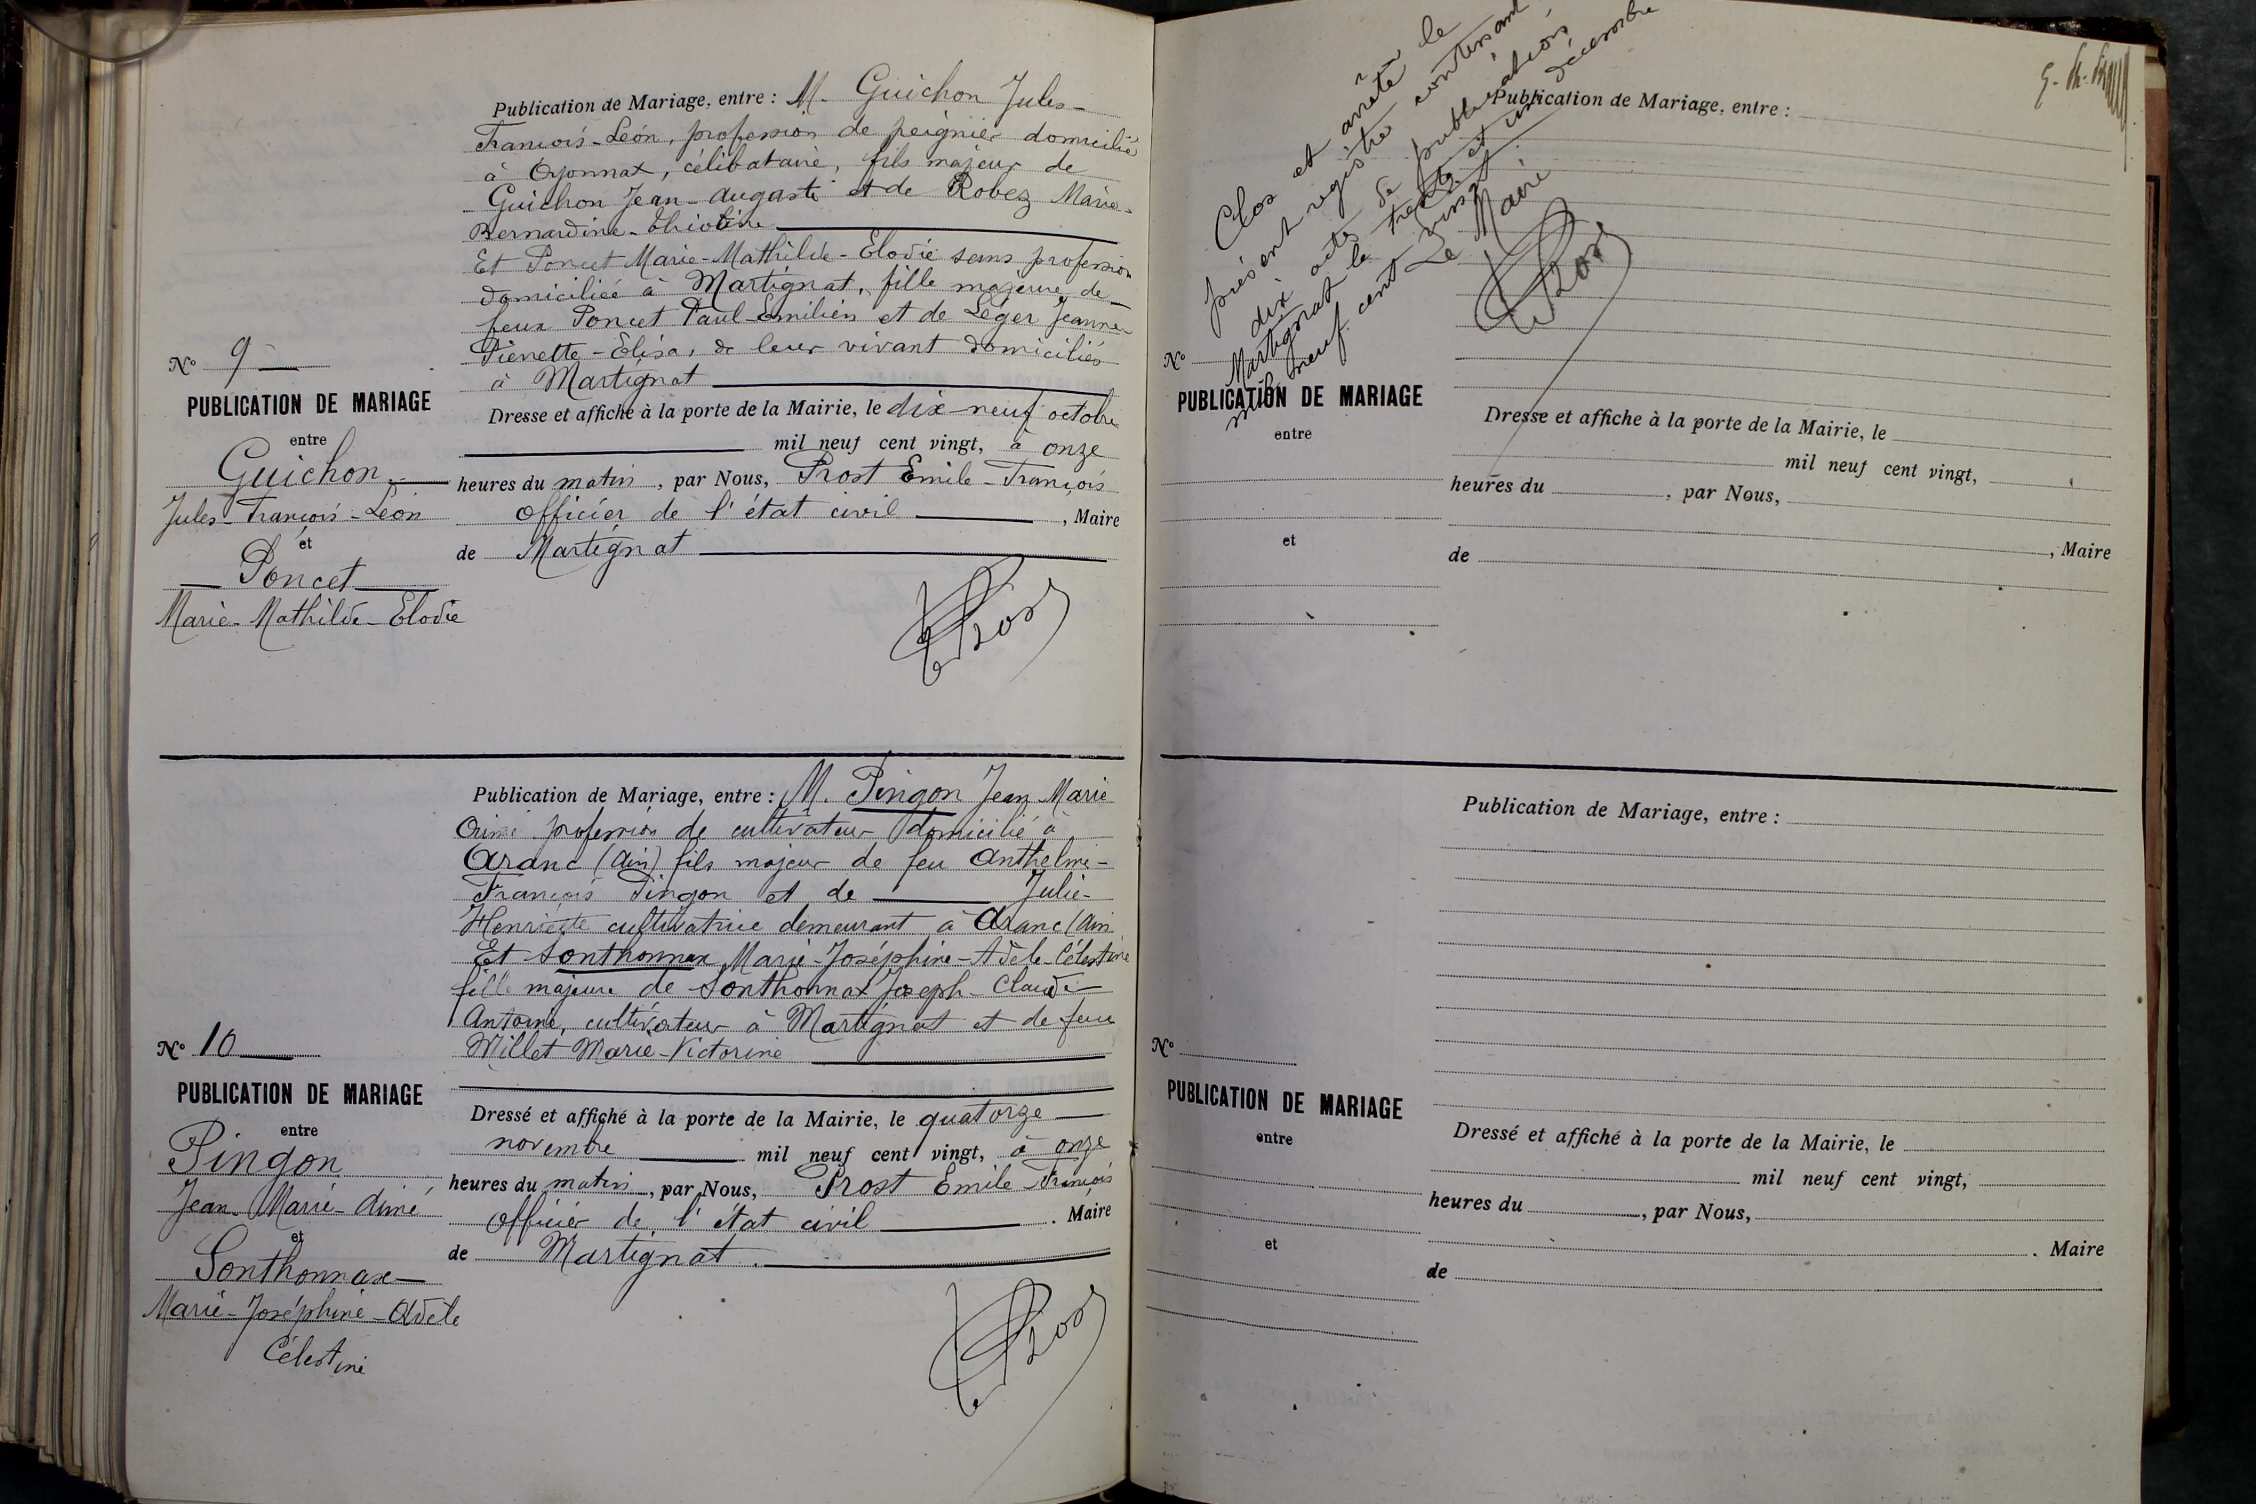 Publication de Mariage, entre : M. Guichon Jules-
François-Léon, profession de peignier domicilié
à Oyonnax, célibataire, fils majeur de
Guichon Jean-Auguste et de Robez Marie-
Bernardine-
Et Poncet Marie-Mathilde-Elodie sans profession
domiciliée à Martignat, fille majeure de
feux Poncet Paul-Emilien et de Léger Jeanne-
Pierrette-Elisa, de leur vivant domiciliés
à Martignat
Dresse et affiche à la porte de la Mairie, le dix-neuf octobre
mil neuf cent vingt, à onze
heures du matin, par Nous, Prost Emile-François
officier de l'état civil, Maire
de Martignat
Prost
N° 9
PUBLICATION DE MARIAGE
entre
Guichon
Jules-François-Léon
et
Poncet
Marie-Mathilde-Elodie
Publication de Mariage, entre : M. Pingon Jean Marie
Aimé profession de cultivateur domicilié à
Aranc (Ain) fils majeur de feu Anthelme-
François Pingon et de Julie-
Henriette cultivatrice demeurant à Aranc (Ain
Et Sonthonnax Marie-Joséphine-Adèle-Célestine
fille majeure de Sonthonnax Joseph-Claude
Antoine, cultivateur à Martignat et de feue
Millet Marie-Victorine
Dressé et affiché à la porte de la Mairie, le quatorze
novembre mil neuf cent vingt, à onze
heures du matin, par Nous, Prost Emile-François
officier de l'état civil. Maire
de Martignat.
Prost
N° 10
PUBLICATION DE MARIAGE
entre
Pingon
Jean-Marie-Aimé
et
Sonthonnax
Marie-Joséphine-Adèle
Célestine
Clos et arrêté le
présent registre contenant
dix actes de publications
Martignat le trente et un décembre
mil neuf cent vingt.
Le Maire
Prost
Publication de Mariage, entre :
N°
PUBLICATION DE MARIAGE
entre
et
Dresse et affiche à la porte de la Mairie, le
mil neuf cent vingt,
heures du , par Nous,
, Maire
de
Publication de Mariage, entre :
N°
PUBLICATION DE MARIAGE
entre
et
Dressé et affiché à la porte de la Mairie, le
mil neuf cent vingt,
heures du , par Nous,
. Maire
de